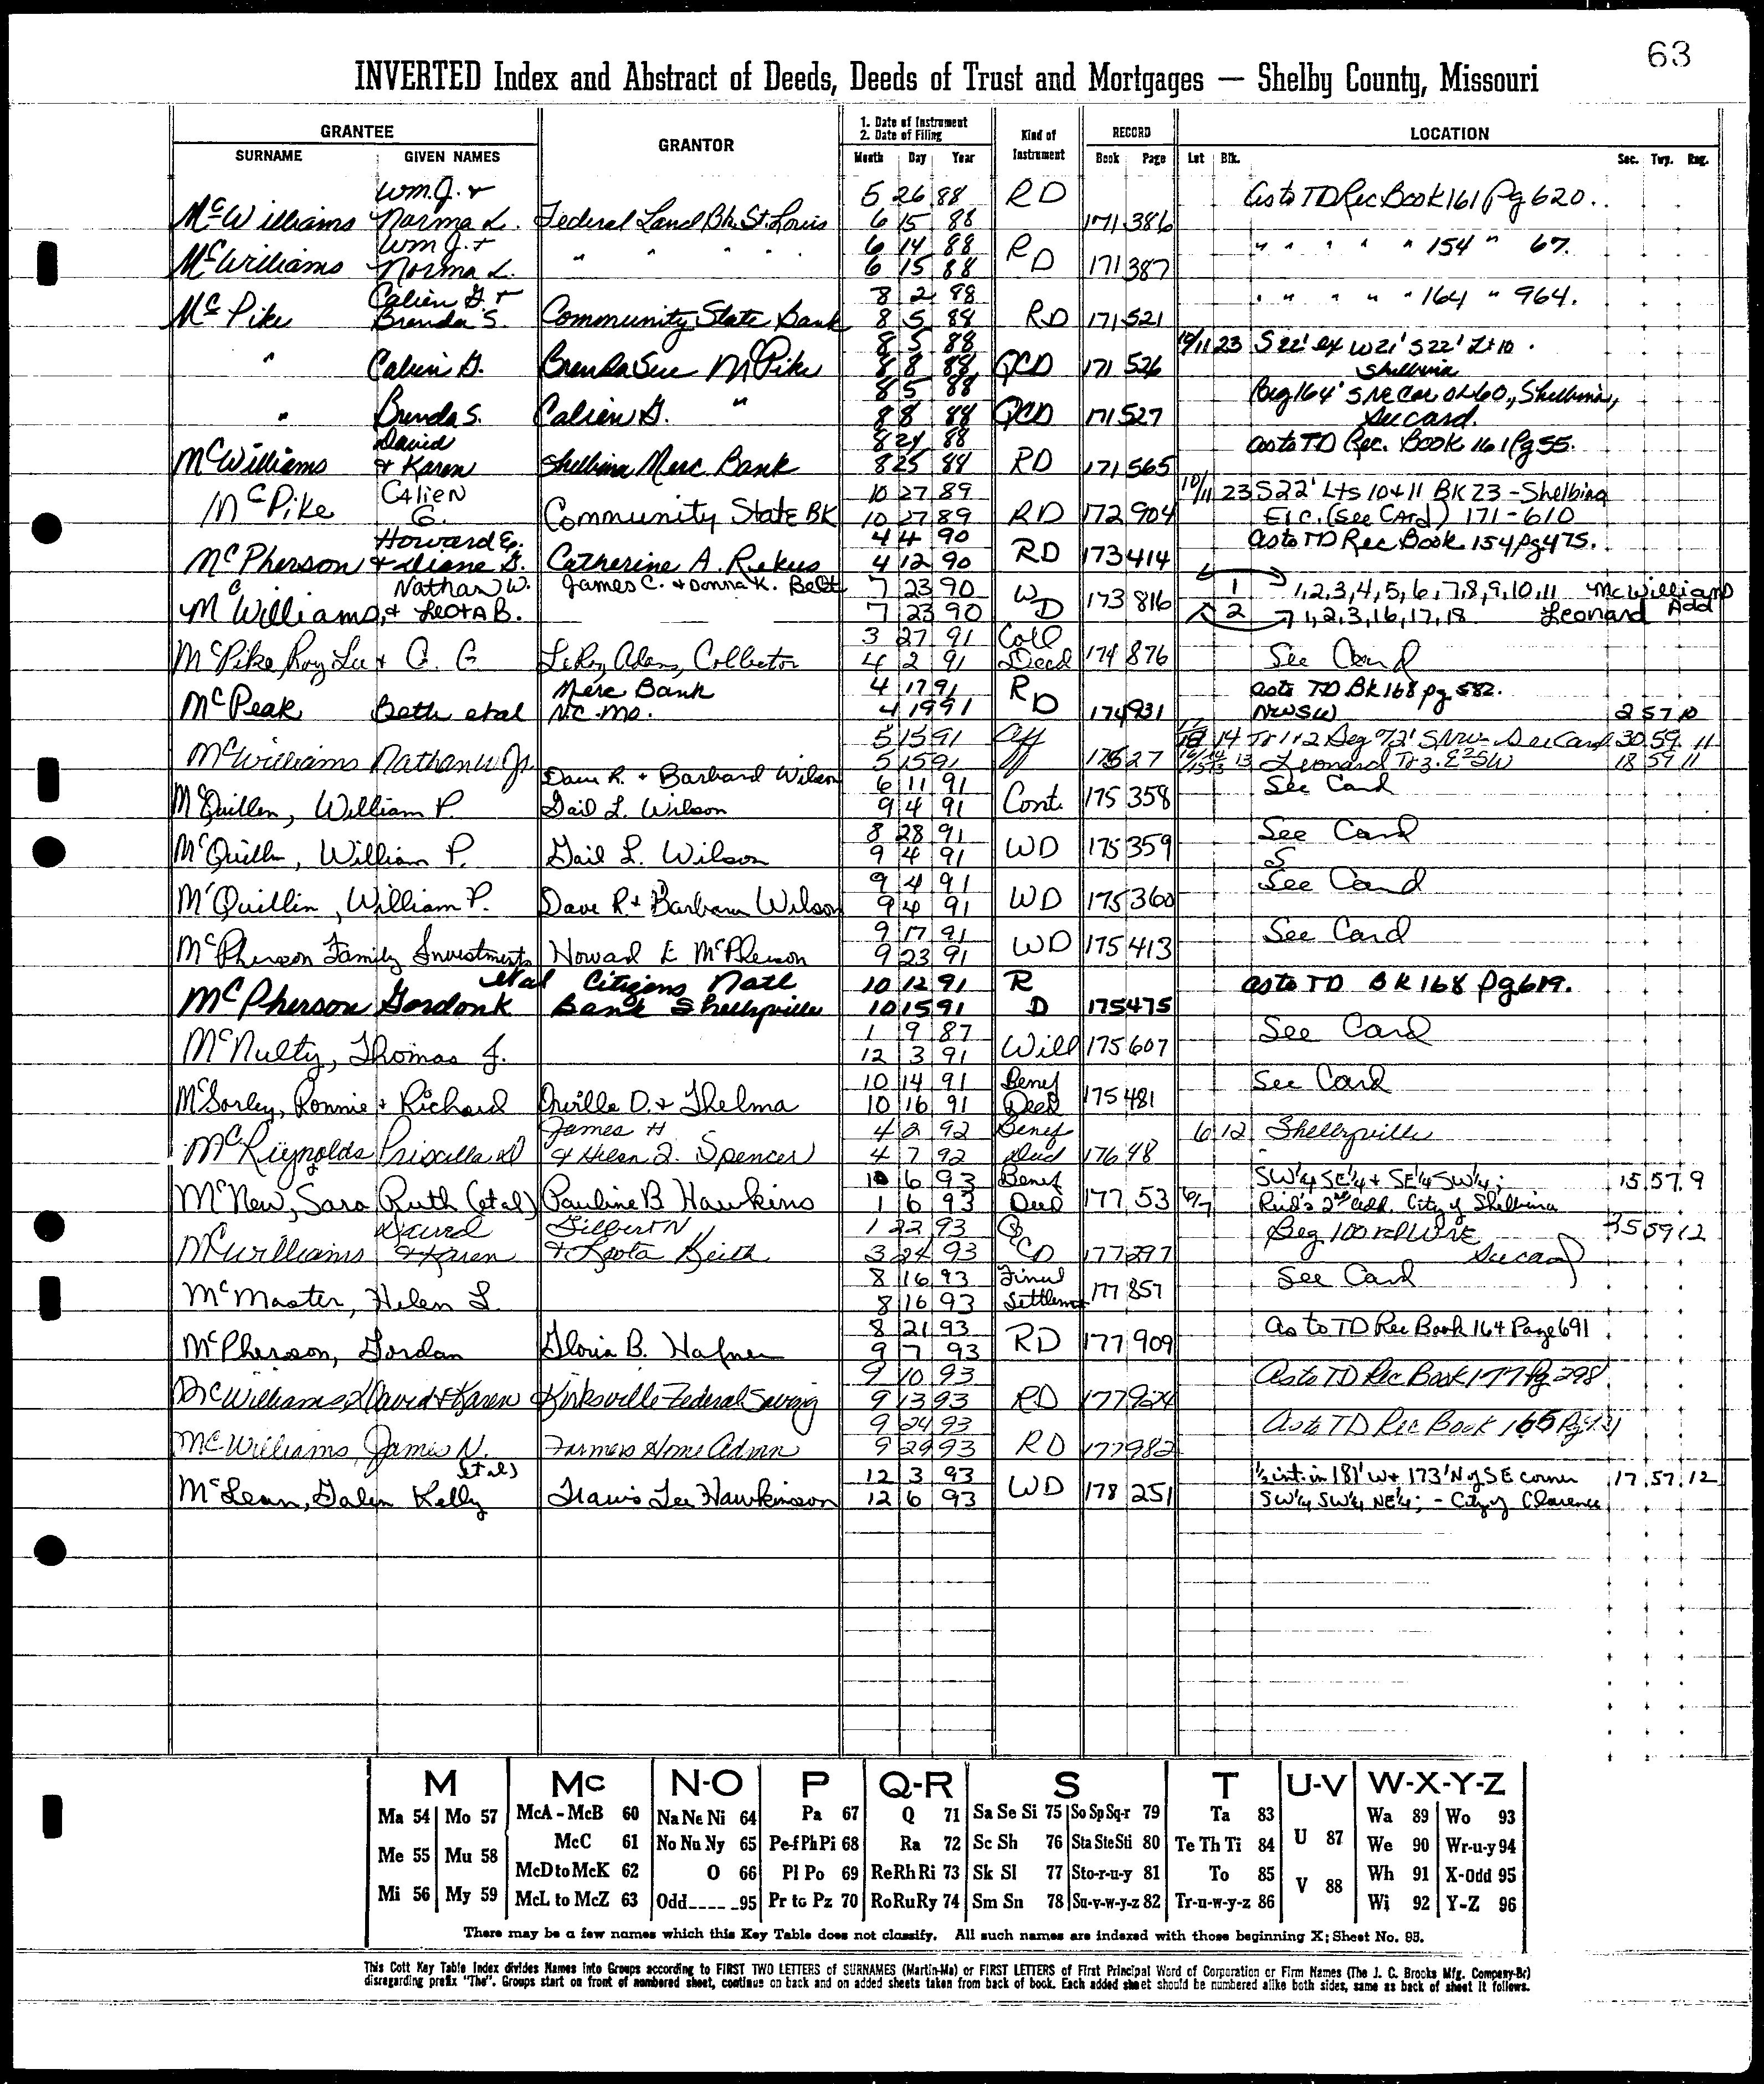 63
INVERTED Index and Abstract of Deeds, Deeds of Trust and Mortgages — Shelby County, Missouri
GRANTEE GRANTOR 1. Date of Instrument 2. Date of Filing Kind of Instrument RECORD LOCATION
SURNAME GIVEN NAMES Month Day Year Book Page Lot Blk. Sec. Twp. Rng.
Wm. J. + 5 26 88 RD As to TD Rec Book 161 Pg 620.
McWilliams Norma L. Federal Land Bk. St. Louis 6 15 88 171 386
Wm J. + " " " " 6 14 88 RD " " " " " 154 " 67.
McWilliams Norma L. 6 15 88 171 387
Calien G. + 8 2 88 " " " " " 164 " 964.
McPike Brenda S. Community State Bank 8 5 88 RD 171 521
8 5 88 10/11 23 S 22' ex W 21' S 22' Lt 10.
" Calien G. Brenda Sue McPike 8 8 88 QCD 171 526 Shelbina
8 5 88 Beg 164' S NE Cor OL 60, Shelbina,
" Brenda S. Calien G. " 8 8 88 QCD 171 527 See card.
David 8 24 88 As to TD Rec. Book 161 Pg 55.
McWilliams + Karen Shelbina Merc. Bank 8 25 88 RD 171 565
Calien 10 27 89 10/11 23 S 22' Lts 10+11 BK 23 - Shelbina
McPike G. Community State BK 10 27 89 RD 172 904 Etc. (See Card) 171-610
Howard E. 4 4 90 As to TD Rec Book 154 pg 475.
McPherson + Diane G. Catherine A. Rekus 4 12 90 RD 173 414
Nathan W. James C. + Donna K. Belt 7 23 90 WD 1 1,2,3,4,5,6,7,8,9,10,11 McWilliams
McWilliams, + Leota B. 7 23 90 173 816 2 1,2,3,16,17,18 Leonard Add
3 27 91 Coll
McPike, Roy Lee + G. G. LeRoy Adams, Collector 4 2 91 Deed 174 876 See Card
Merc Bank 4 17 91 RD As to TD Bk 168 pg 582.
McPeak Beth etal N.C. Mo. 4 19 91 174 931 NWSW 2 57 10
5 15 91 Aff 14 Tr 1+2 Beg 72' S NW - See Card 30 59 11
McWilliams Nathan W Jr. 5 15 91 175 27 13 Leonard Tr 3. E2SW 18 59 11
Dave R. + Barbara Wilson 6 11 91 See Card
McQuillen, William P. Gail L. Wilson 9 4 91 Cont. 175 358
8 28 91 See Card
McQuillin, William P. Gail L. Wilson 9 4 91 WD 175 359
9 4 91 See Card
McQuillin, William P. Dave R. + Barbara Wilson 9 4 91 WD 175 360
9 17 91 See Card
McPherson Family Investments Howard E McPherson 9 23 91 WD 175 413
etal Citizens Natl 10 12 91 R As to TD BK 168 pg 619.
McPherson Gordon K Bank Shelbyville 10 15 91 D 175 475
1 9 87 See Card
McNulty, Thomas J. 12 3 91 Will 175 607
10 14 91 Benef See Card
McSorley, Ronnie + Richard Orville D. + Thelma 10 16 91 Deed 175 481
James H 4 2 92 Benef 6 12 Shelbyville
McReynolds Priscilla D + Helen L. Spencer 4 7 92 Deed 176 48
1 6 93 Benef SW¼ SE¼ + SE¼ SW¼; 15 57 9
McNew, Sara Ruth (et al) Pauline B Hawkins 1 6 93 Deed 177 53 6/7 Reid's 2nd Add. City of Shelbina
David Gilbert N 1 22 93 Q Beg 100 rd W NE 35 59 12
McWilliams + Karen + Leota Keith 3 24 93 CD 177 297 See card
8 16 93 Final See Card
McMaster, Helen L. 8 16 93 Settlement 177 857
8 21 93 As to TD Rec Book 164 Page 691
McPherson, Gordan Gloria B. Hafner 9 7 93 RD 177 909
9 10 93 As to TD Rec Book 177 Pg 298
McWilliams, David + Karen Kirksville Federal Saving 9 13 93 RD 177 924
9 24 93 As to TD Rec Book 165 Pg 131
McWilliams, James N. Farmers Home Admn 9 29 93 RD 177 982
(et al) 12 3 93 ½ int. in 181' W + 173' N of SE corner 17 57 12
McLean, Galen Kelly Travis Lee Hawkinson 12 6 93 WD 178 251 SW¼ SW¼ NE¼; - City of Clarence
M Mc N-O P Q-R S T U-V W-X-Y-Z
Ma 54 Mo 57 McA - McB 60 Na Ne Ni 64 Pa 67 Q 71 Sa Se Si 75 So Sp Sq-r 79 Ta 83 U 87 Wa 89 Wo 93
Me 55 Mu 58 McC 61 No Nu Ny 65 Pe-f Ph Pi 68 Ra 72 Sc Sh 76 Sta Ste Sti 80 Te Th Ti 84 We 90 Wr-u-y 94
McD to McK 62 O 66 Pl Po 69 Re Rh Ri 73 Sk Sl 77 Sto-r-u-y 81 To 85 V 88 Wh 91 X-Odd 95
Mi 56 My 59 McL to McZ 63 Odd_____95 Pr to Pz 70 Ro Ru Ry 74 Sm Sn 78 Su-v-w-y-z 82 Tr-u-w-y-z 86 Wi 92 Y-Z 96
There may be a few names which this Key Table does not classify. All such names are indexed with those beginning X; Sheet No. 95.
This Cott Key Table Index divides Names into Groups according to FIRST TWO LETTERS of SURNAMES (Martin-Ma) or FIRST LETTERS of First Principal Word of Corporation or Firm Names (The J. C. Brooks Mfg. Company-Br)
disregarding prefix "The". Groups start on front of numbered sheet, continue on back and on added sheets taken from back of book. Each added sheet should be numbered alike both sides, same as back of sheet it follows.